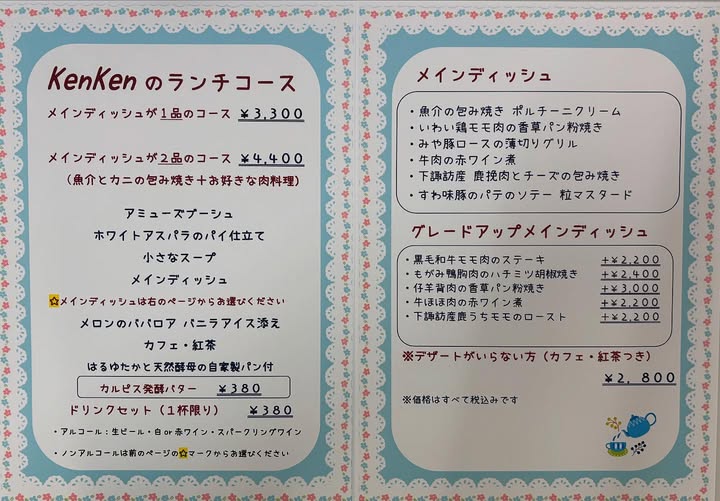 KenKen のランチコース
メインディッシュが1品のコース ￥3,300
メインディッシュが2品のコース ￥4,400
(魚介とカニの包み焼き+お好きな肉料理)
アミューズブーシュ
ホワイトアスパラのパイ仕立て
小さなスープ
メインディッシュ
☆メインディッシュは右のページからお選びください
メロンのババロア バニラアイス添え
カフェ・紅茶
はるゆたかと天然酵母の自家製パン付
カルピス発酵バター ￥380
ドリンクセット(1杯限り) ￥380
・アルコール:生ビール・白or赤ワイン・スパークリングワイン
・ノンアルコールは前のページの☆マークからお選びください
メインディッシュ
・魚介の包み焼き ポルチーニクリーム
・いわい鶏モモ肉の香草パン粉焼き
・みや豚ロースの薄切りグリル
・牛肉の赤ワイン煮
・下諏訪産 鹿挽肉とチーズの包み焼き
・すわ味豚のパテのソテー 粒マスタード
グレードアップメインディッシュ
・黒毛和牛モモ肉のステーキ +￥2,200
・もがみ鴨胸肉のハチミツ胡椒焼き +￥2,400
・仔羊背肉の香草パン粉焼き +￥3,000
・牛ほほ肉の赤ワイン煮 +￥2,200
・下諏訪産鹿うちモモのロースト +￥2,200
※デザートがいらない方(カフェ・紅茶つき)
￥2,800
※価格はすべて税込みです